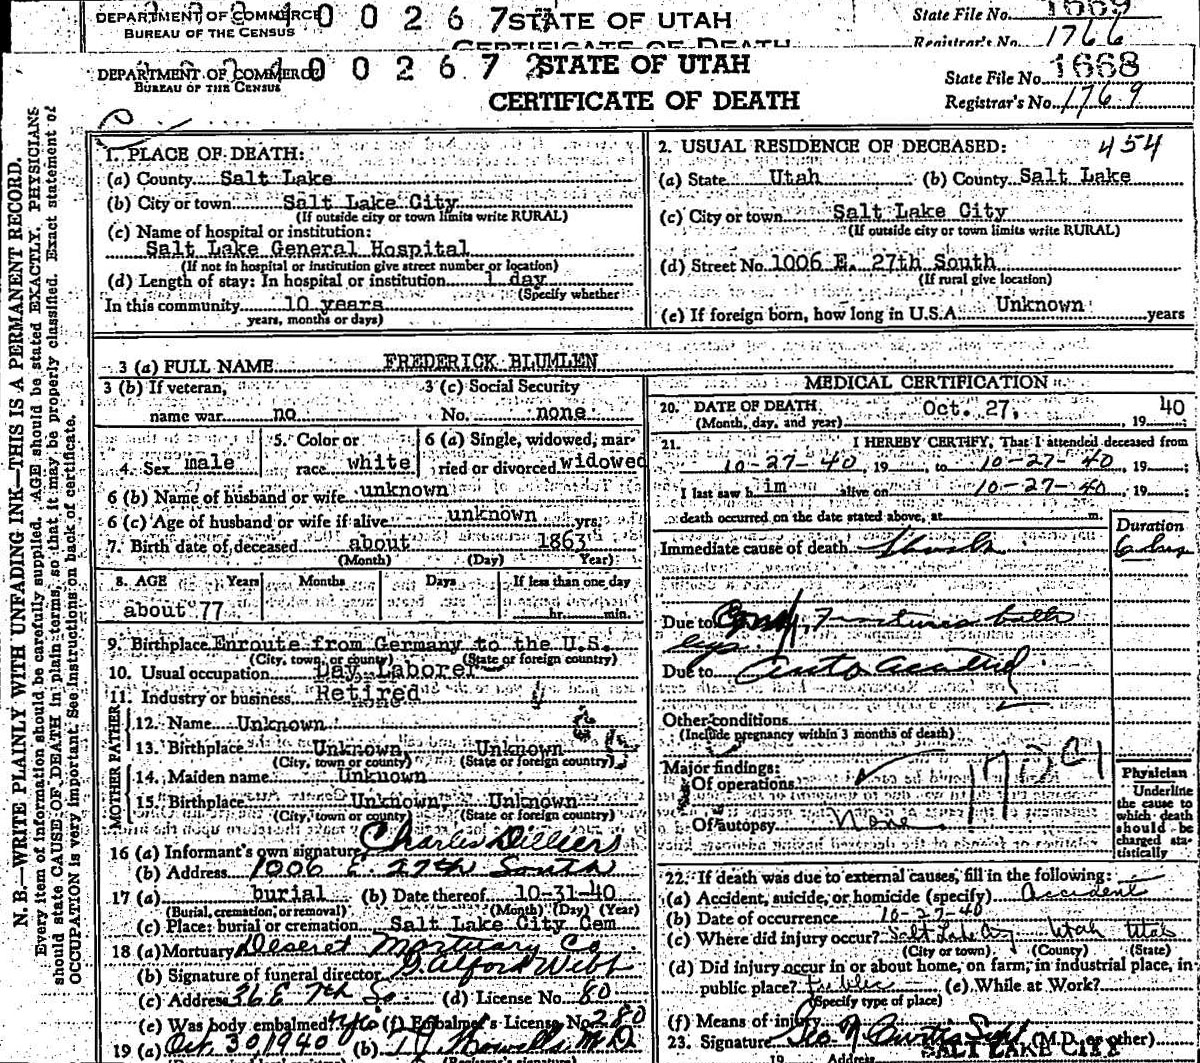 DEPARTMENT OF COMMERCE
BUREAU OF THE CENSUS
STATE OF UTAH
CERTIFICATE OF DEATH
State File No. 1669
Registrar's No. 1766
DEPARTMENT OF COMMERCE
BUREAU OF THE CENSUS
1002672
STATE OF UTAH
CERTIFICATE OF DEATH
State File No. 1668
Registrar's No. 1769
N. B.—WRITE PLAINLY WITH UNFADING INK—THIS IS A PERMANENT RECORD.
Every item of information should be carefully supplied. AGE should be stated EXACTLY. PHYSICIANS
should state CAUSE OF DEATH in plain terms, so that it may be properly classified. Exact statement of
OCCUPATION is very important. See instructions on back of certificate.
1. PLACE OF DEATH:
(a) County Salt Lake
(b) City or town Salt Lake City
(If outside city or town limits write RURAL)
(c) Name of hospital or institution:
Salt Lake General Hospital
(If not in hospital or institution give street number or location)
(d) Length of stay: In hospital or institution 1 day
(Specify whether
In this community 10 years
years, months or days)
2. USUAL RESIDENCE OF DECEASED: 454
(a) State Utah (b) County Salt Lake
(c) City or town Salt Lake City
(If outside city or town limits write RURAL)
(d) Street No. 1006 E. 27th South
(If rural give location)
(e) If foreign born, how long in U.S.A. Unknown years
3 (a) FULL NAME FREDERICK BLUMLEN
3 (b) If veteran, name war no
3 (c) Social Security No. none
4. Sex male
5. Color or race white
6 (a) Single, widowed, married or divorced widowed
6 (b) Name of husband or wife unknown
6 (c) Age of husband or wife if alive unknown yrs.
7. Birth date of deceased about 1863
(Month) (Day) (Year)
8. AGE Years Months Days If less than one day
about 77 hr. min.
9. Birthplace Enroute from Germany to the U.S.
(City, town, or county) (State or foreign country)
10. Usual occupation Day Laborer
11. Industry or business Retired
FATHER
12. Name Unknown
13. Birthplace Unknown, Unknown
(City, town or county) (State or foreign country)
MOTHER
14. Maiden name Unknown
15. Birthplace Unknown, Unknown
(City, town or county) (State or foreign country)
16 (a) Informant's own signature Charles Dilliers
(b) Address 1006 E. 27th South
17 (a) burial (b) Date thereof 10-31-40
(Burial, cremation, or removal) (Month) (Day) (Year)
(c) Place: burial or cremation Salt Lake City Cem
18 (a) Mortuary Deseret Mortuary Co.
(b) Signature of funeral director D. Alford Webb
(c) Address 36 E 7th So (d) License No. 80
(e) Was body embalmed? yes (f) Embalmer's License No. 280
19 (a) Oct. 30, 1940 (b) M.D.
MEDICAL CERTIFICATION
20. DATE OF DEATH Oct. 27, 19 40
(Month, day, and year)
21. I HEREBY CERTIFY, That I attended deceased from
10-27-40, 19 to 10-27-40, 19 ;
I last saw h im alive on 10-27-40, 19 ;
death occurred on the date stated above, at m.
Duration
Immediate cause of death Shock
Due to Fractures both
legs.
Due to Auto accident
Other conditions
(Include pregnancy within 3 months of death)
Major findings:
Of operations
Of autopsy None
Physician
Underline
the cause to
which death
should be
charged sta-
tistically
22. If death was due to external causes, fill in the following:
(a) Accident, suicide, or homicide (specify) Accident
(b) Date of occurrence 10-27-40
(c) Where did injury occur? Salt Lake City Utah Utah
(City or town) (County) (State)
(d) Did injury occur in or about home, on farm, in industrial place, in
public place? Public (e) While at Work?
(Specify type of place)
(f) Means of injury
23. Signature Geo N Curtis (M.D. or other)
SALT LAKE CITY
19 Address